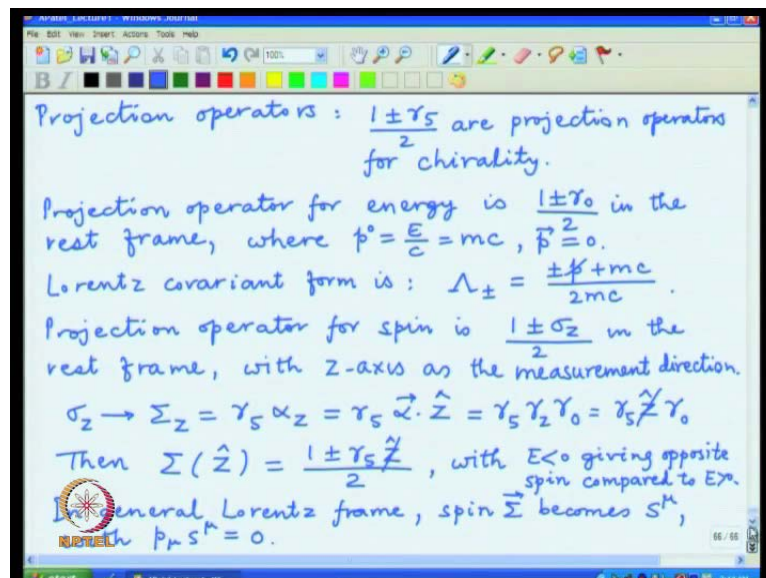 APatel_Lecture1 - Windows Journal
File Edit View Insert Actions Tools Help
100%
B I
Projection operators : (1 ± γ5)/2 are projection operators
for chirality.
Projection operator for energy is (1 ± γ0)/2 in the
rest frame, where p⁰ = E/c = mc, p⃗ = 0.
Lorentz covariant form is : Λ± = (±p̸ + mc)/2mc .
Projection operator for spin is (1 ± σz)/2 in the
rest frame, with z-axis as the measurement direction.
σz → Σz = γ5 αz = γ5 α⃗·ẑ = γ5 γz γ0 = γ5 ẑ̸ γ0
Then Σ(ẑ) = (1 ± γ5 ẑ̸)/2 , with E<0 giving opposite
spin compared to E>0.
In general Lorentz frame, spin Σ⃗ becomes S^μ,
with pμ s^μ = 0.
NPTEL
66 / 66